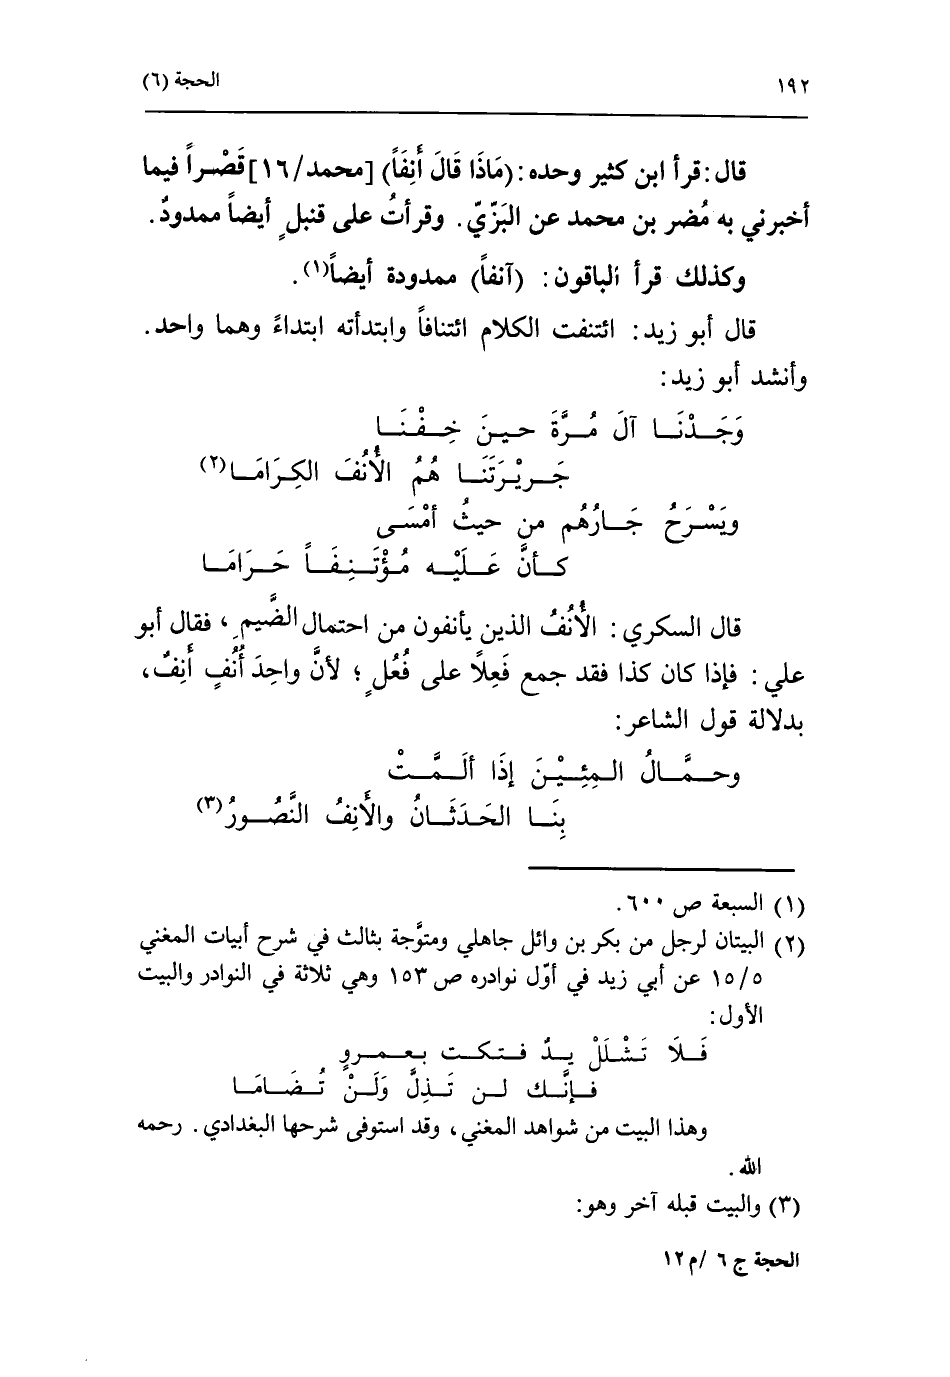 ١٩٢
الحجة (٦)
قال: قرأ ابن كثير وحده: (مَاذَا قَالَ أَنِفَاً) [محمد/١٦] قَصْراً فيما
أخبرني به مُضر بن محمد عن البَزّيّ. وقرأتُ على قنبلٍ أيضاً ممدودٌ.
وكذلك قرأ الباقون: (آنفاً) ممدودة أيضاً(١).
قال أبو زيد: ائتنفت الكلام ائتنافاً وابتدأته ابتداءً وهما واحد.
وأنشد أبو زيد:
وَجَـدْنَـا آلَ مُـرَّةَ حـيـنَ خِـفْـنَـا
جَـرِيْـرَتَنَـا هُمُ الأُنُفَ الكِـرَامَـا(٢)
ويَسْـرَحُ جَـارُهُم من حيثُ أمْسَـى
كـأنَّ عَـلَيْـه مُـؤْتَـنِـفَـاً حَـرَامَـا
قال السكري: الأُنُفُ الذين يأنفون من احتمال الضَّيم، فقال أبو
علي: فإذا كان كذا فقد جمع فَعِلاً على فُعُلٍ؛ لأنَّ واحِدَ أُنُفٍ أَنِفٌ،
بدلالة قول الشاعر:
وحـمَّـالُ الـمِئِـيْـنَ إذَا ألَـمَّـتْ
بِنَـا الحَـدَثَـانُ والأَنِفُ النَّصُـورُ(٣)
(١) السبعة ص ٦٠٠.
(٢) البيتان لرجل من بكر بن وائل جاهلي ومتوَّجة بثالث في شرح أبيات المغني
١٥/٥ عن أبي زيد في أوّل نوادره ص ١٥٣ وهي ثلاثة في النوادر والبيت
الأول:
فَـلَا تَـشْـلَلْ يـدٌ فـتـكـت بـعـمـروٍ
فـإنَّـك لـن تَـذِلَّ وَلَـنْ تُـضَـامَـا
وهذا البيت من شواهد المغني، وقد استوفى شرحها البغدادي. رحمه
الله.
(٣) والبيت قبله آخر وهو:
الحجة ج ٦ /م ١٢